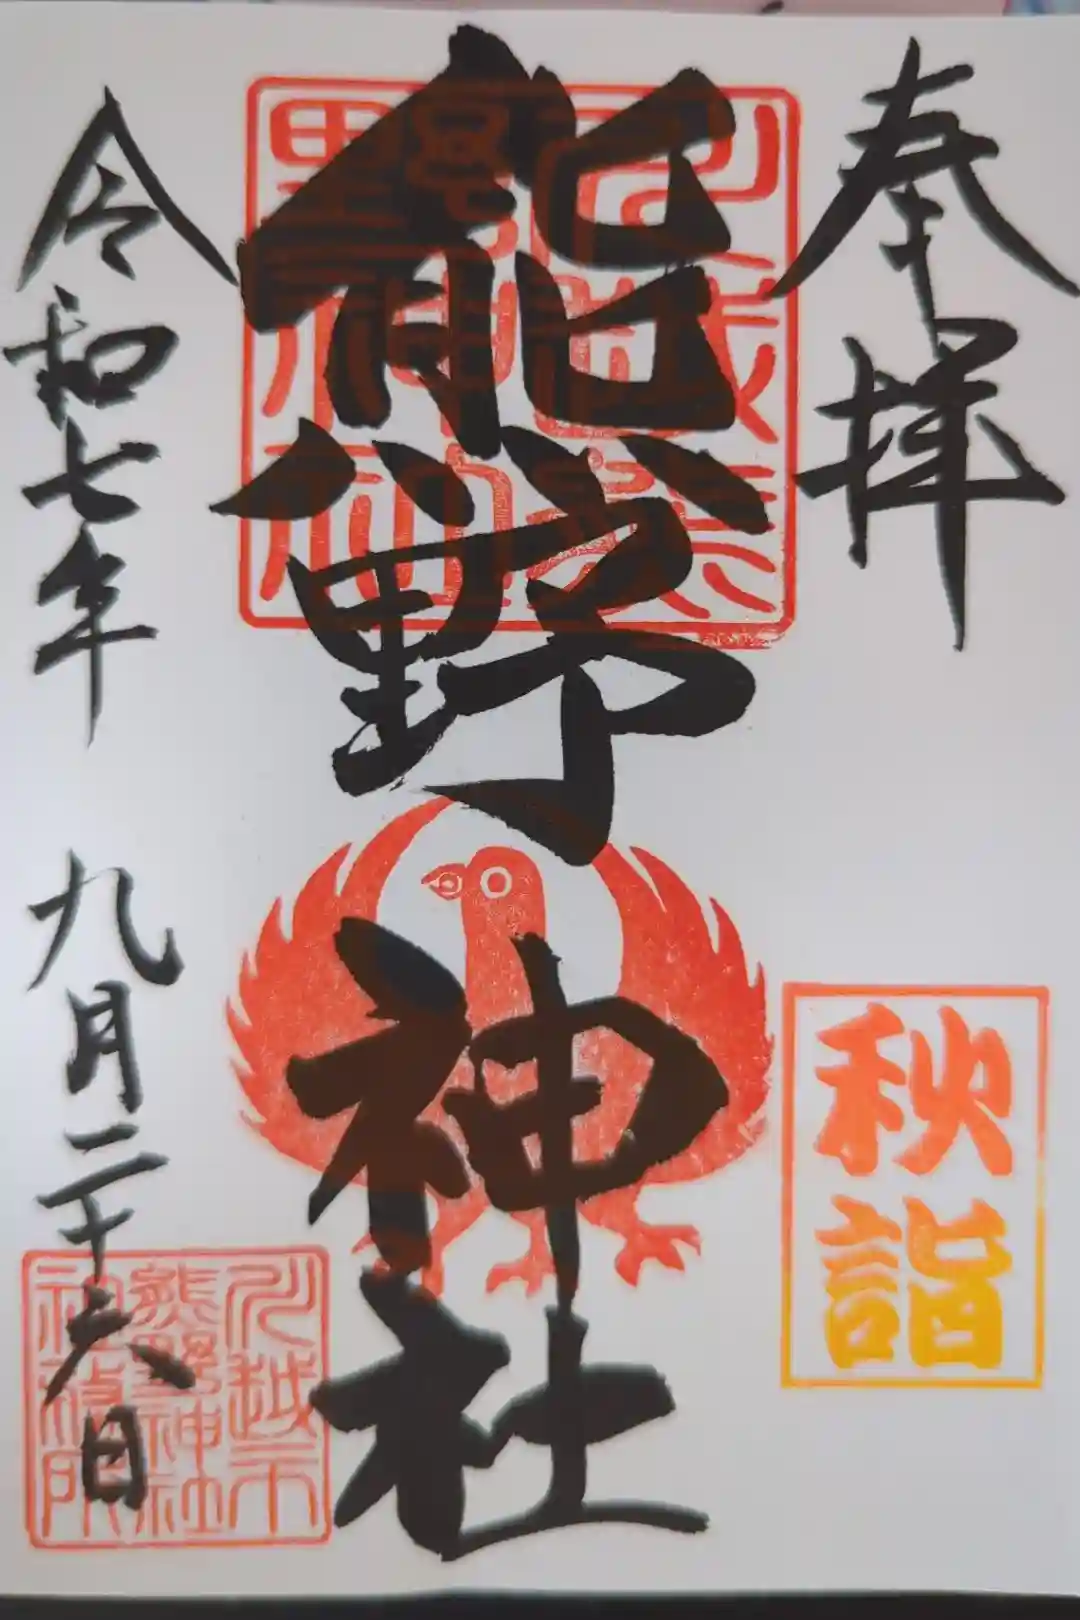 奉拝
秋詣
熊野神社
川越熊野神社
令和七年 九月二十六日
川越市
熊野神社